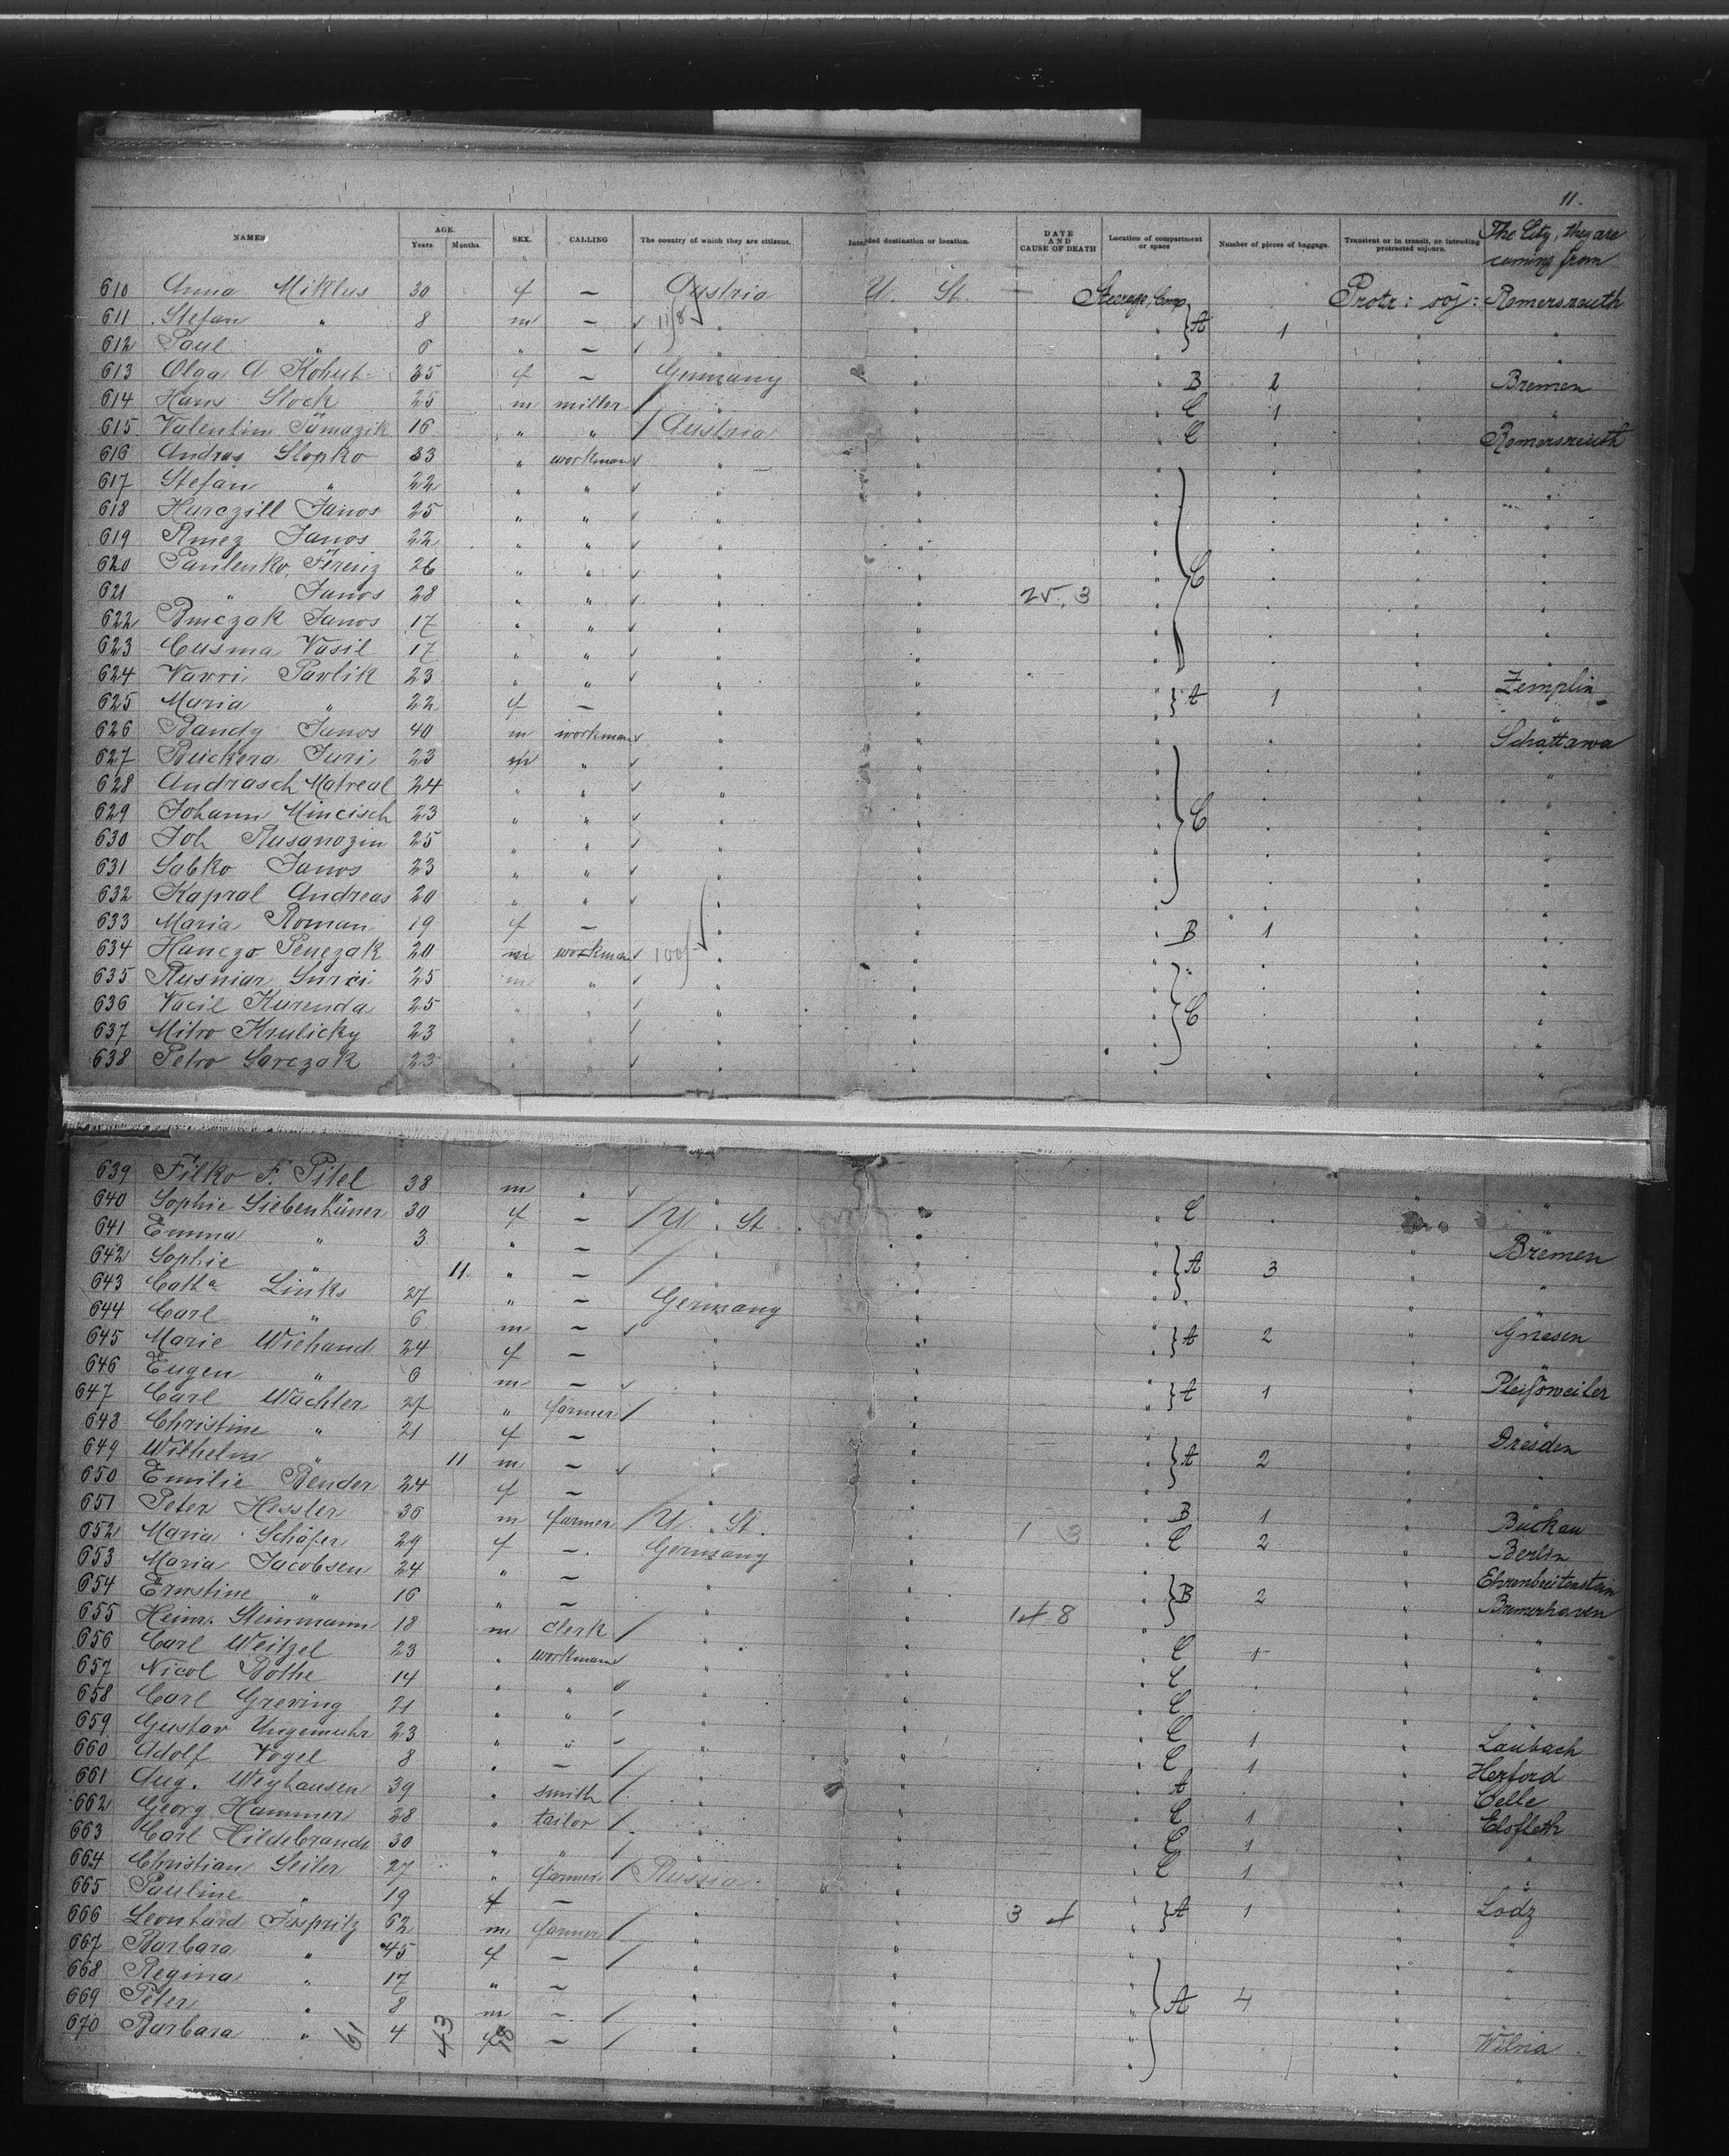 11.
NAMES AGE. Years Months. SEX. CALLING The country of which they are citizens. Intended destination or location. DATE AND CAUSE OF DEATH Location of compartment or space Number of pieces of baggage. Transient or in transit, or intending protracted sojourn. The City, they are coming from
610 Anna Miklus 30 f — Austria U. St. Steerage, Comp. Protr: soj: Romersreuth
611 Stefan " 8 m — 11/8 " " " } A 1 " "
612 Paul " 6 " — " " " " "
613 Olga A Kohut 35 f — Germany " " B 2 " Bremen
614 Hans Glock 25 m miller / " " " C 1 " "
615 Valentin 16 " " / Austria " " C " " Romersreuth
616 Andras Slopko 33 " workman " " " " " "
617 Stefan " 22 " " " " " " " "
618 Hurczill Janos 25 " " " " " " " "
619 Janos 22 " " " " " " " "
620 Paulenko Ferenz 26 " " " " " C " " "
621 " Janos 28 " " " " 25. 3 " " " "
622 Janos 17 " " " " " " " "
623 Cusma Vasil 17 " " " " " " " "
624 Pavlik 23 " " " " " " " Zemplin
625 Maria " 22 f — " " " } A 1 " "
626 Bandy Janos 40 m workman " " " " " Schattawa
627 Juri 23 m " " " " " " "
628 Andrasch Matreal 24 " " " " " " " "
629 Johann Mincisch 23 " " " " " C " " "
630 Joh Rusanozin 25 " " " " " " " "
631 Sabko Janos 23 " " " " " " " "
632 Kapral Andreas 20 " " " " " " " "
633 Maria Roman 19 f — " " " B 1 " "
634 Hanczo Penczak 20 m workman 100 " " " " " "
635 Rusniar 25 m " " " " " " "
636 Vacil Kurenda 25 " " " " " C " " "
637 Mitro Krulicky 23 " " " " " " " "
638 Petro Sarczak 23 " " " " " " " "
639 Filko F. Pitel 38 m " " " C " " "
640 Sophie Siebenhüner 30 f — / U. St. " " " Bremen
641 Emma " 3 " — / " " " } A 3 " "
642 Sophie " 11 " — / " " " " "
643 Cath a Links 27 " — Germany " " } A 2 " Gnesen
644 Carl " 6 m — " " " " "
645 Marie Wiehand 24 f — " " " } A 1 " Pleißweiler
646 Eugen " 6 m — " " " " "
647 Carl Wachter 27 " farmer / " " " Dresden
648 Christine " 21 f — " " " } A 2 " "
649 Wilhelm " 11 m — " " " " "
650 Emilie Bender 24 f — " " " B 1 " Buckau
651 Peter Hessler 36 m farmer / U. St. " 1 3 " C 2 " Berlin
652 Maria Schäfer 29 f — Germany " " Ehrenbreitenstein
653 Maria Jacobsen 24 " — " " " } B 2 " Bremerhaven
654 Ernstine " 16 " — " " " " "
655 Heinr. Steinmann 18 m clerk / " " 1 + 8 " C 1 " "
656 Carl Weitzel 23 " workman " " " C " " "
657 Nicol Bothe 14 " " " " " C " "
658 Carl Greving 21 " " " " " C 1 " Laubach
659 Gustav Ungemuhr 23 " " " " " C 1 " Herford
660 Adolf Vogel 8 " — / " " " A " Celle
661 Aug. Weyhausen 39 " smith / " " " C 1 " Elsfleth
662 Georg Hammer 28 " tailor / " " " C 1 " "
663 Carl Hildebrandt 30 " " / " " " C 1 "
664 Christian Seiler 27 " farmer / Russia " " Lodz
665 Pauline " 19 f — " " 3 + " } A 1 " "
666 Leonhard 62 m farmer / " " " "
667 Barbara " 45 f — / " " " "
668 Regina " 17 " — " " " } A 4 "
669 Peter " 8 m — / " " " "
670 Barbara " 4 f — / " " " Wilna
61 43 18